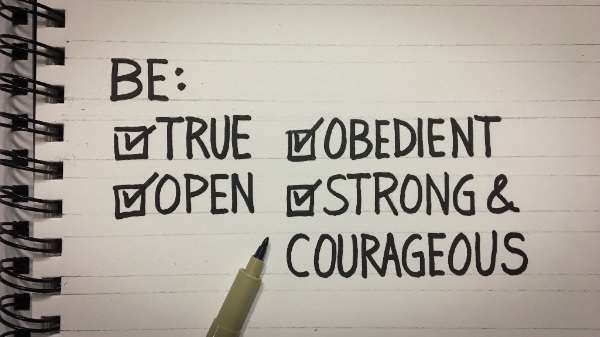 BE:
TRUE
OPEN
OBEDIENT
STRONG &
COURAGEOUS